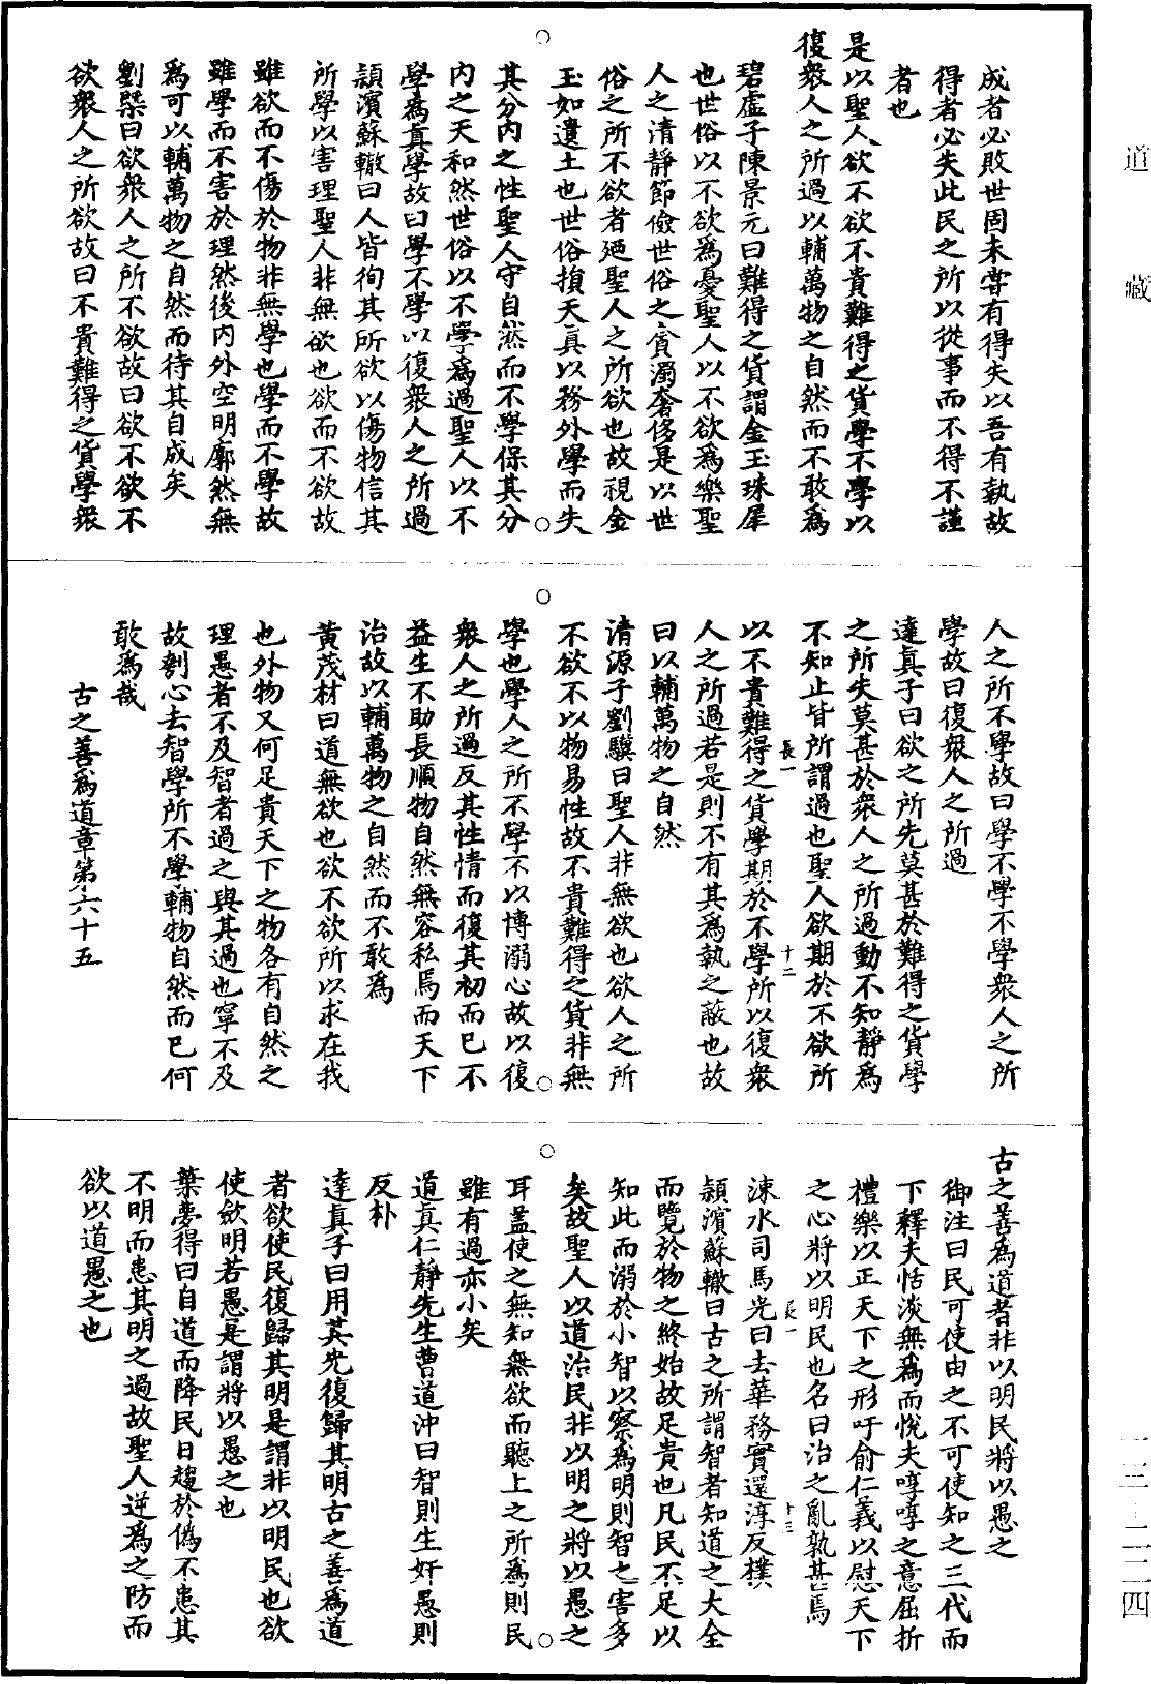 道藏
成者必敗世固未嘗有得失以吾有執故
得者必失此民之所以從事而不得不謹
者也
是以聖人欲不欲不貴難得之貨學不學以
復衆人之所過以輔萬物之自然而不敢爲
碧虛子陳景元曰難得之貨謂金玉珠犀
也世俗以不欲爲憂聖人以不欲爲樂聖
人之清靜節儉世俗之貪溺奢侈是以世
俗之所不欲者廼聖人之所欲也故視金
玉如遺土也世俗損天真以務外學而失
其分內之性聖人守自然而不學保其分
內之天和然世俗以不學爲過聖人以不
學爲真學故曰學不學以復衆人之所過
頴濱蘇轍曰人皆徇其所欲以傷物信其
所學以害理聖人非無欲也欲而不欲故
雖欲而不傷於物非無學也學而不學故
雖學而不害於理然後內外空明廓然無
爲可以輔萬物之自然而待其自成矣
劉槩曰欲衆人之所不欲故曰欲不欲不
欲衆人之所欲故曰不貴難得之貨學衆
人之所不學故曰學不學不學衆人之所
學故曰復衆人之所過
達真子曰欲之所先莫甚於難得之貨學
之所失莫甚於衆人之所過動不知靜爲
不知止皆所謂過也聖人欲期於不欲所
長一 十二
以不貴難得之貨學期於不學所以復衆
人之所過若是則不有其爲執之蔽也故
曰以輔萬物之自然
清源子劉驥曰聖人非無欲也欲人之所
不欲不以物易性故不貴難得之貨非無
學也學人之所不學不以博溺心故以復
衆人之所過反其性情而復其初而已不
益生不助長順物自然無容私焉而天下
治故以輔萬物之自然而不敢爲
黃茂材曰道無欲也欲不欲所以求在我
也外物又何足貴天下之物各有自然之
理愚者不及智者過之與其過也寧不及
故剗心去智學所不學輔物自然而已何
敢爲哉
古之善爲道章第六十五
古之善爲道者非以明民將以愚之
御注曰民可使由之不可使知之三代而
下釋夫恬淡無爲而悅夫啍啍之意屈折
禮樂以正天下之形吁俞仁義以慰天下
之心將以明民也名曰治之亂孰甚焉
長一 十三
涑水司馬光曰去華務實還淳反樸
頴濱蘇轍曰古之所謂智者知道之大全
而覽於物之終始故足貴也凡民不足以
知此而溺於小智以察爲明則智之害多
矣故聖人以道治民非以明之將以愚之
耳蓋使之無知無欲而聽上之所爲則民
雖有過亦小矣
道真仁靜先生曹道沖曰智則生奸愚則
反朴
達真子曰用其光復歸其明古之善爲道
者欲使民復歸其明是謂非以明民也欲
使斂明若愚是謂將以愚之也
葉夢得曰自道而降民日趨於偽不患其
不明而患其明之過故聖人逆爲之防而
欲以道愚之也
一三-二二四